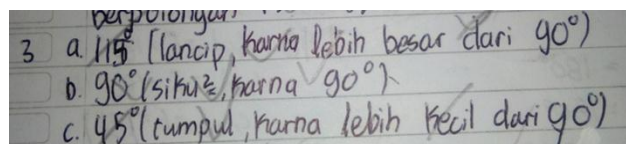 berpotongan
3 a. 115° (lancip, karna lebih besar dari 90°)
b. 90° (siku², karna 90°)
c. 45° (tumpul, karna lebih kecil dari 90°)